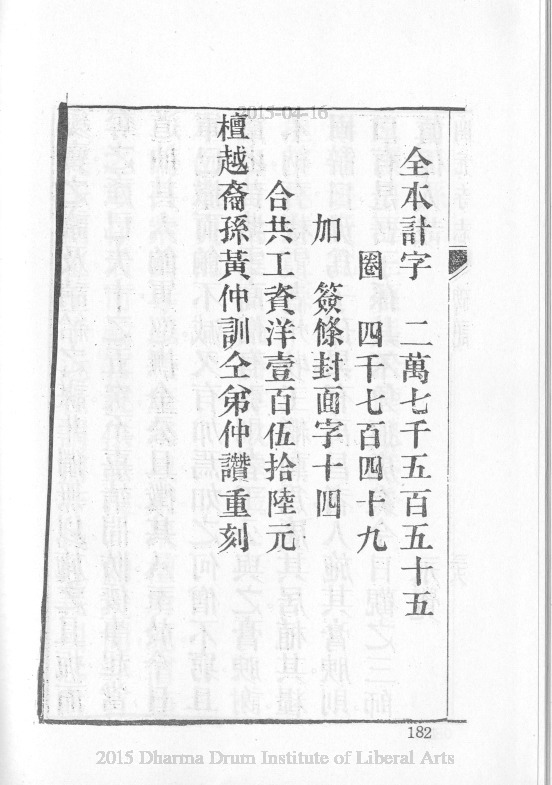 2015-04-16
全本計字　二萬七千五百五十五
圈　四千七百四十九
加　簽條封面字十四
合共工資洋壹百伍拾陸元
檀越裔孫黃仲訓仝弟仲讚重刻
182
2015 Dharma Drum Institute of Liberal Arts